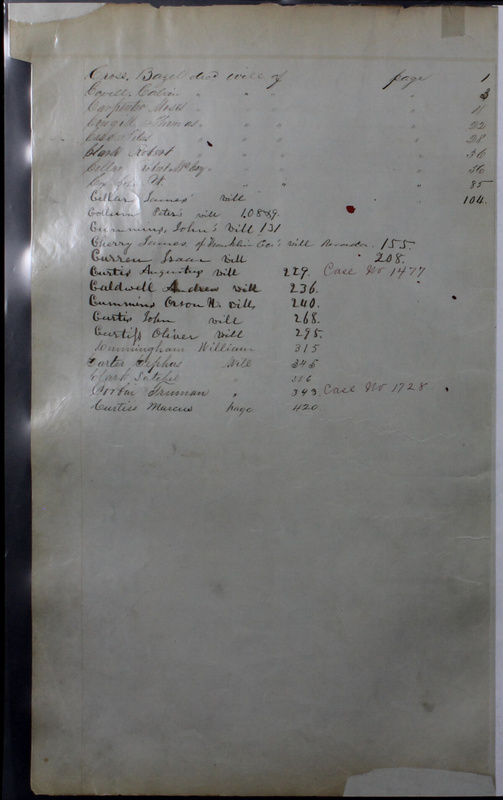 Cross, Bazel dec'd will of " page 1
Covell, Calvin " " " " 3
Carpenter Moses " " " " 11
Cowgill Thomas " " " " 22
Case Silas " " " " 28
Clark Robert " " " " 36
Robert McCoy " " " 56
Cox John W. " " " 85
Cellar James' will " 104.
Coleman Peter's will 108 & 9.
Cummins, John's Will 131
Cherry James of Franklin Co's will Recorder. 155.
Curren Isaac Will 208.
Curtis Augustus Will 229. Case No 1477
Caldwell Andrew Will 236.
Cummins Orson W. Wills 240.
Curtis John will 268.
Curtiss Oliver will 295.
Cunningham William 315
Carter Cephas Will 345
Clark 306
Truman " 343. Case No 1728
Curtiss Marcus page 420